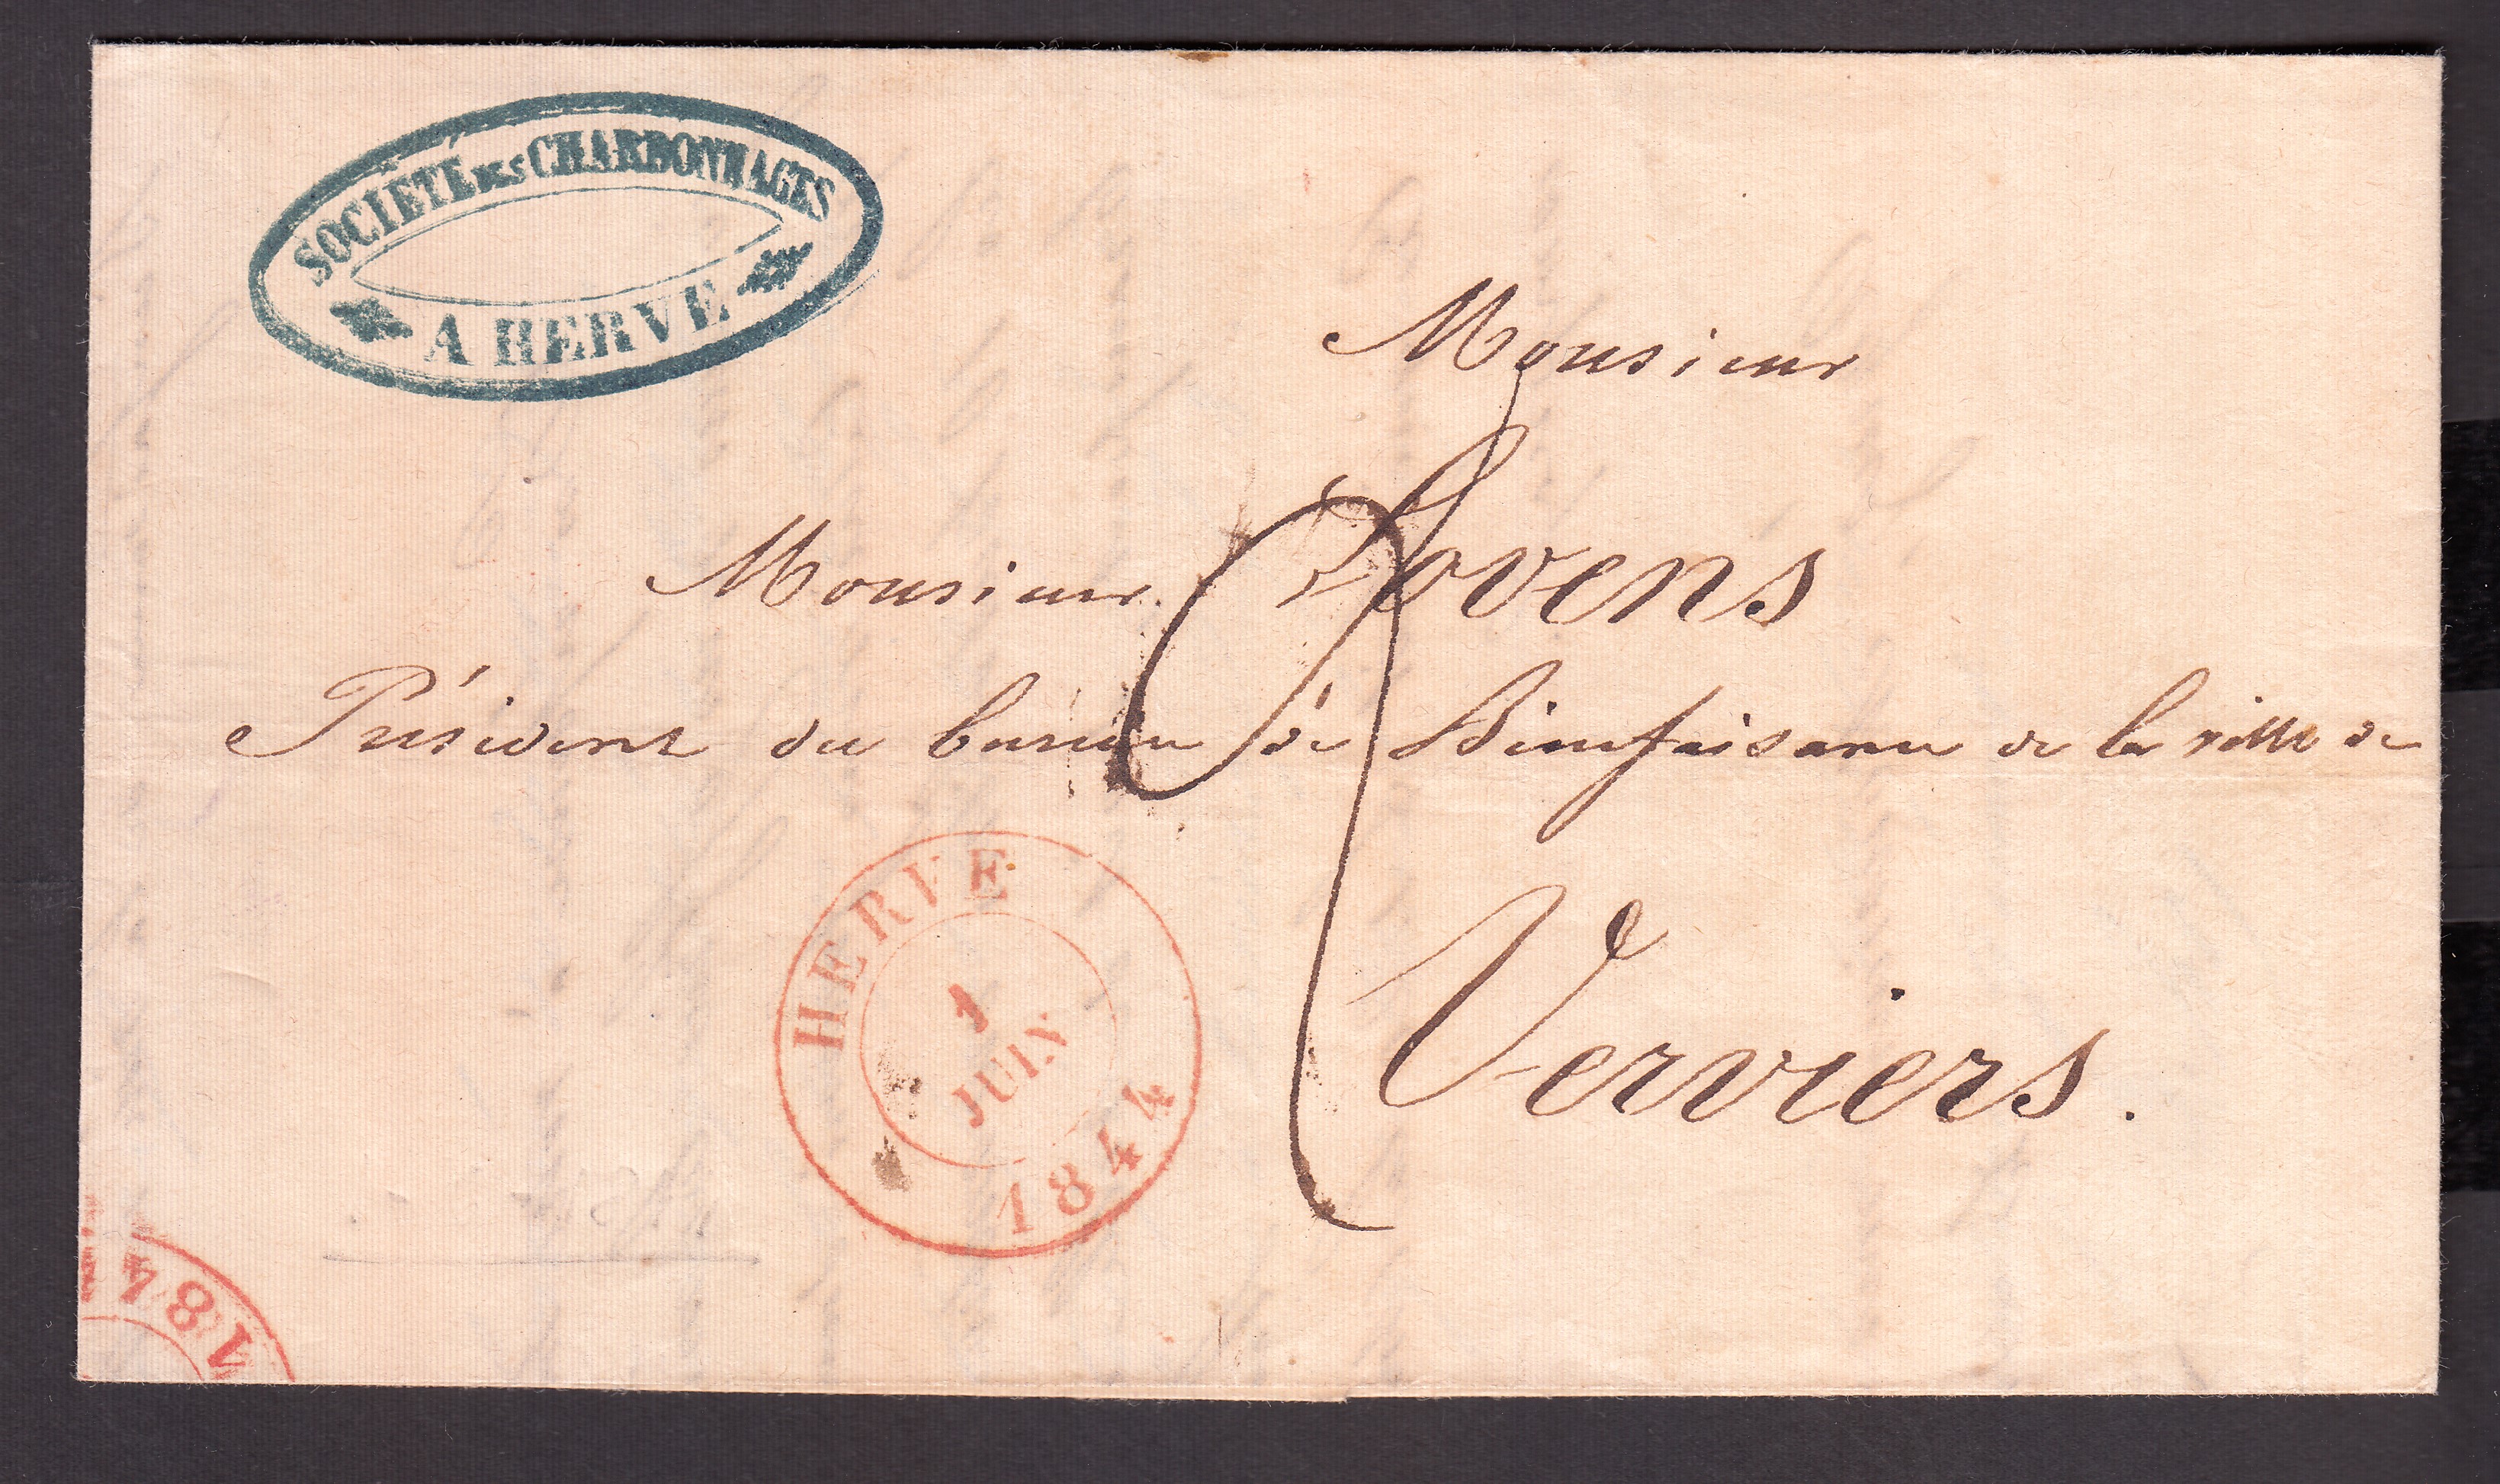 SOCIÉTÉ DES CHARBONNAGES
A HERVE
Monsieur
Monsieur Lovens
Président du bureau de Bienfaisance de la ville de
Verviers.
HERVE
1
JUIN
1844
184